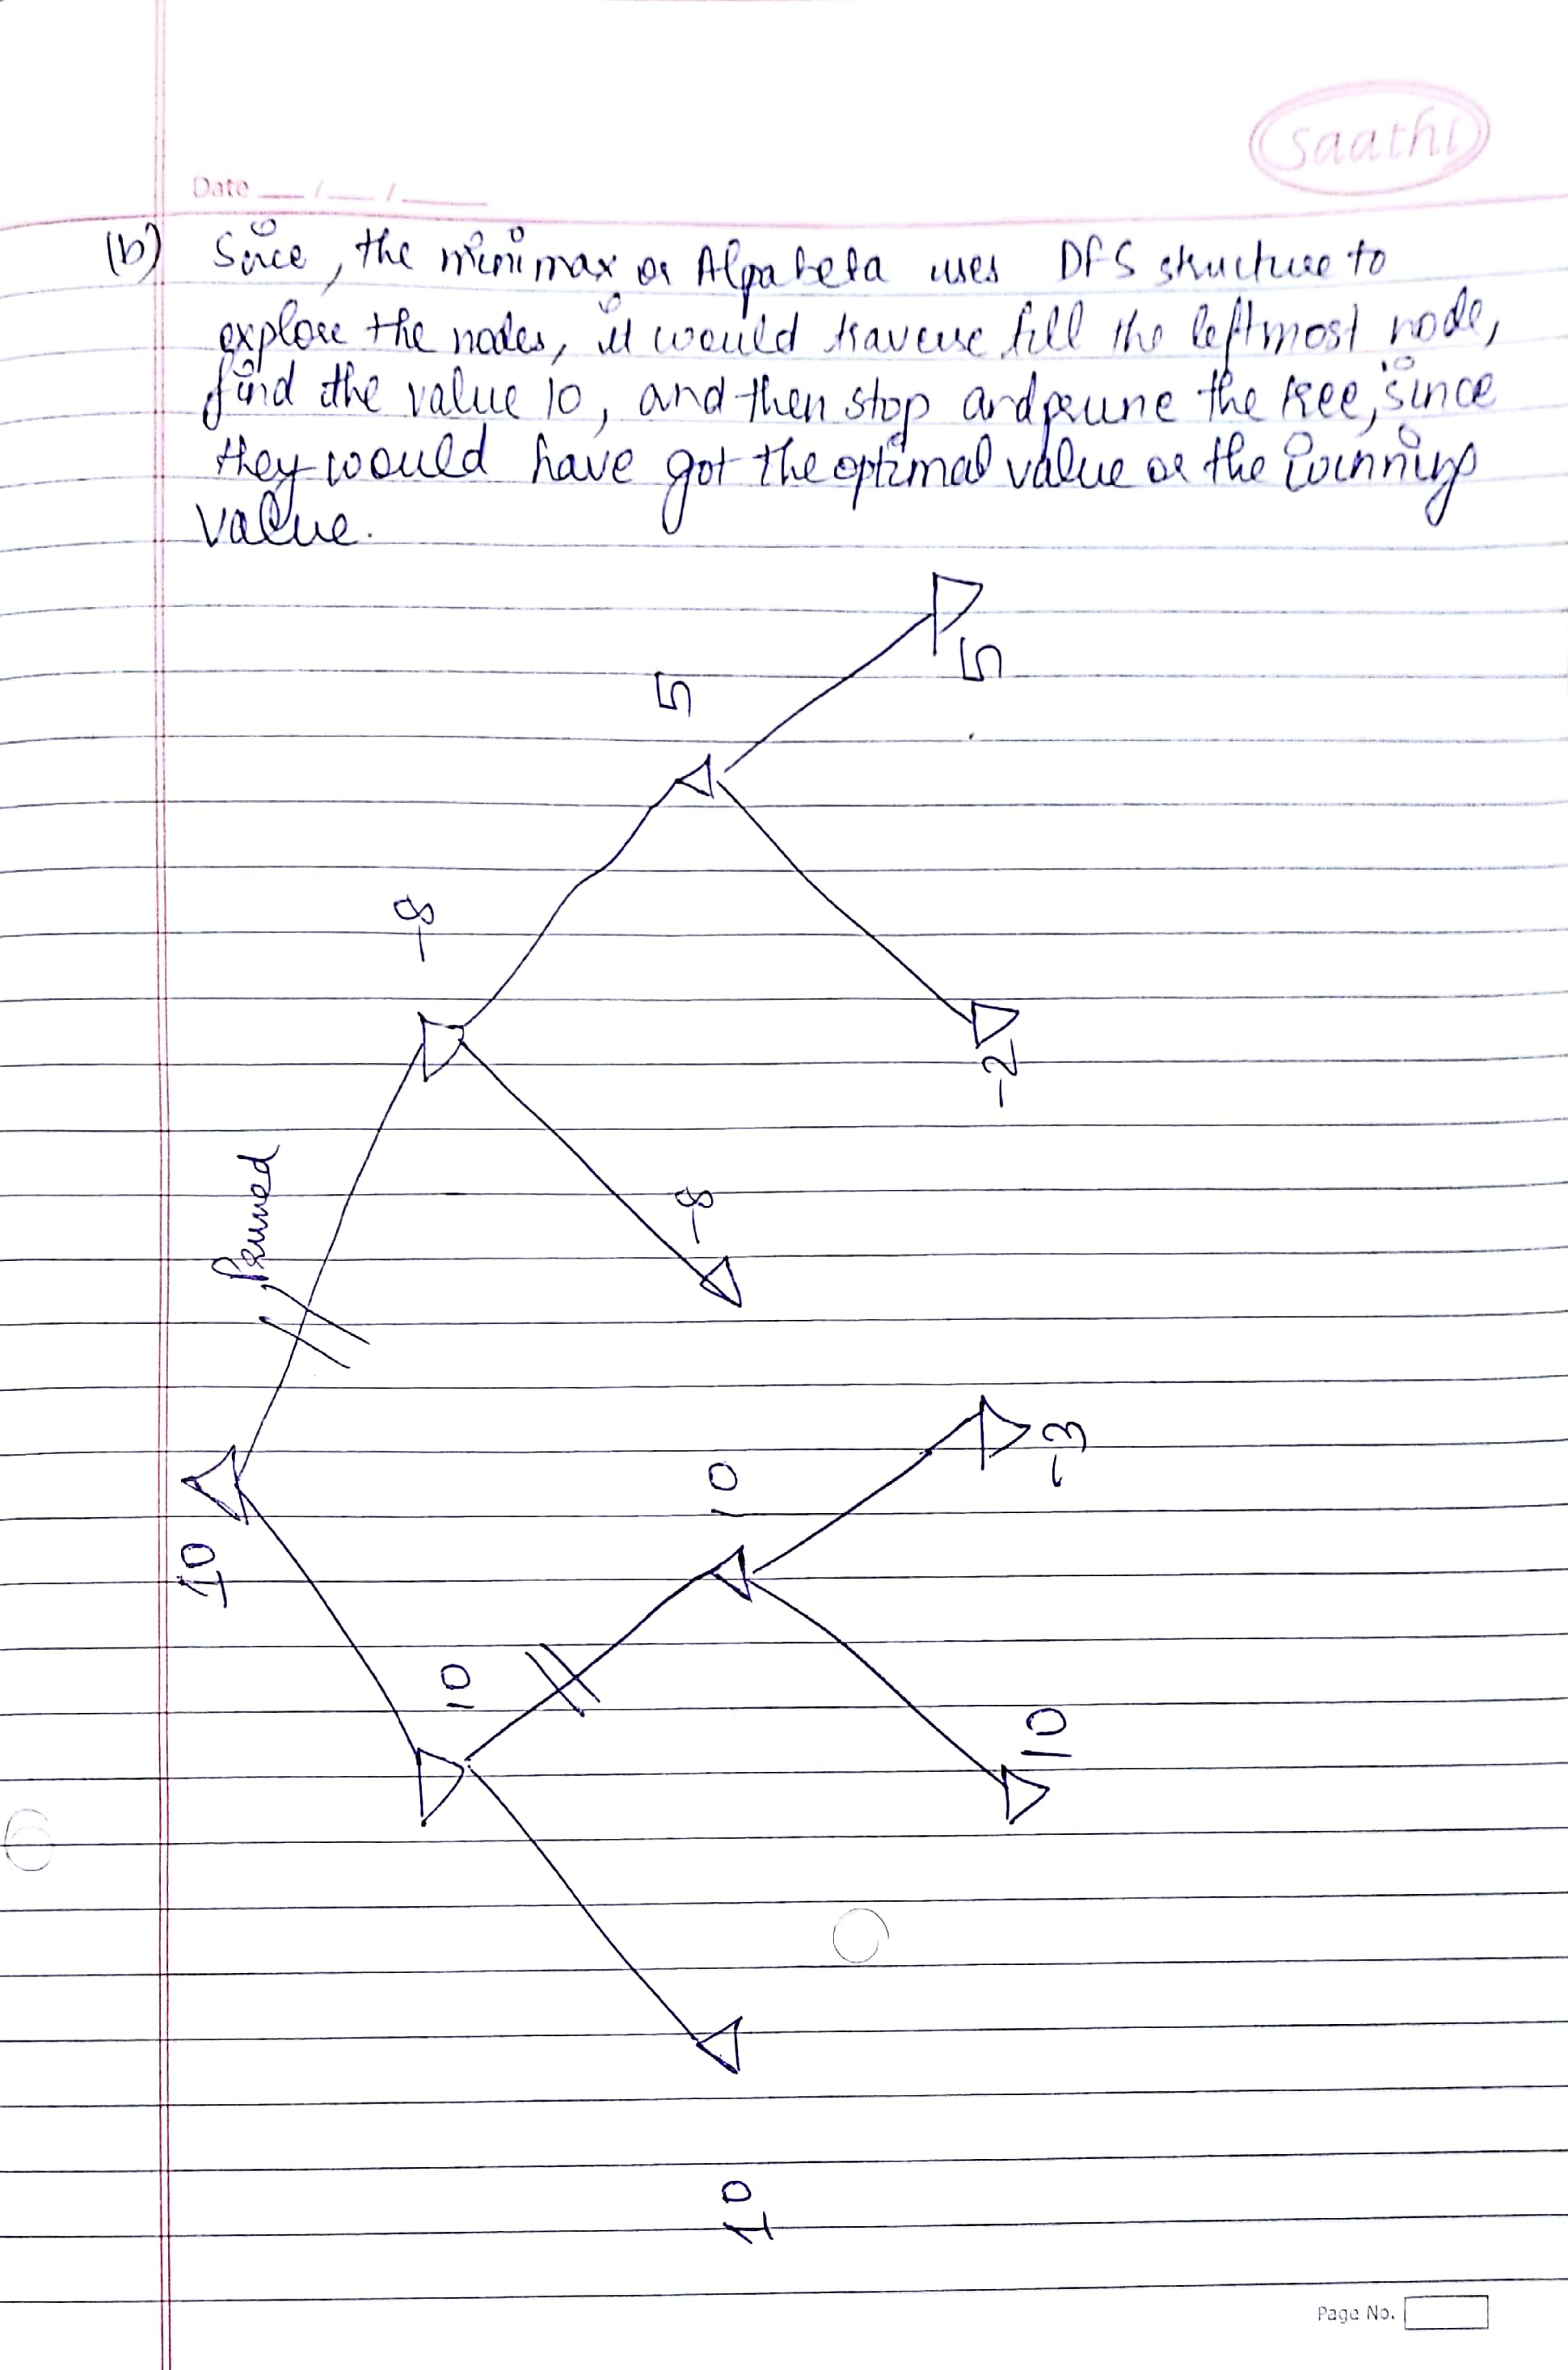 saathi
Date __/__/____
(b) Since, the minimax or Alpabeta uses DFS structure to
explore the nodes, it would traverse till the leftmost node,
find the value 10, and then stop and prune the tree, since
they would have got the optimal value or the winning
value.
5
5
-8
-2
Pruned
-8
-3
10
10
10
10
10
Page No.